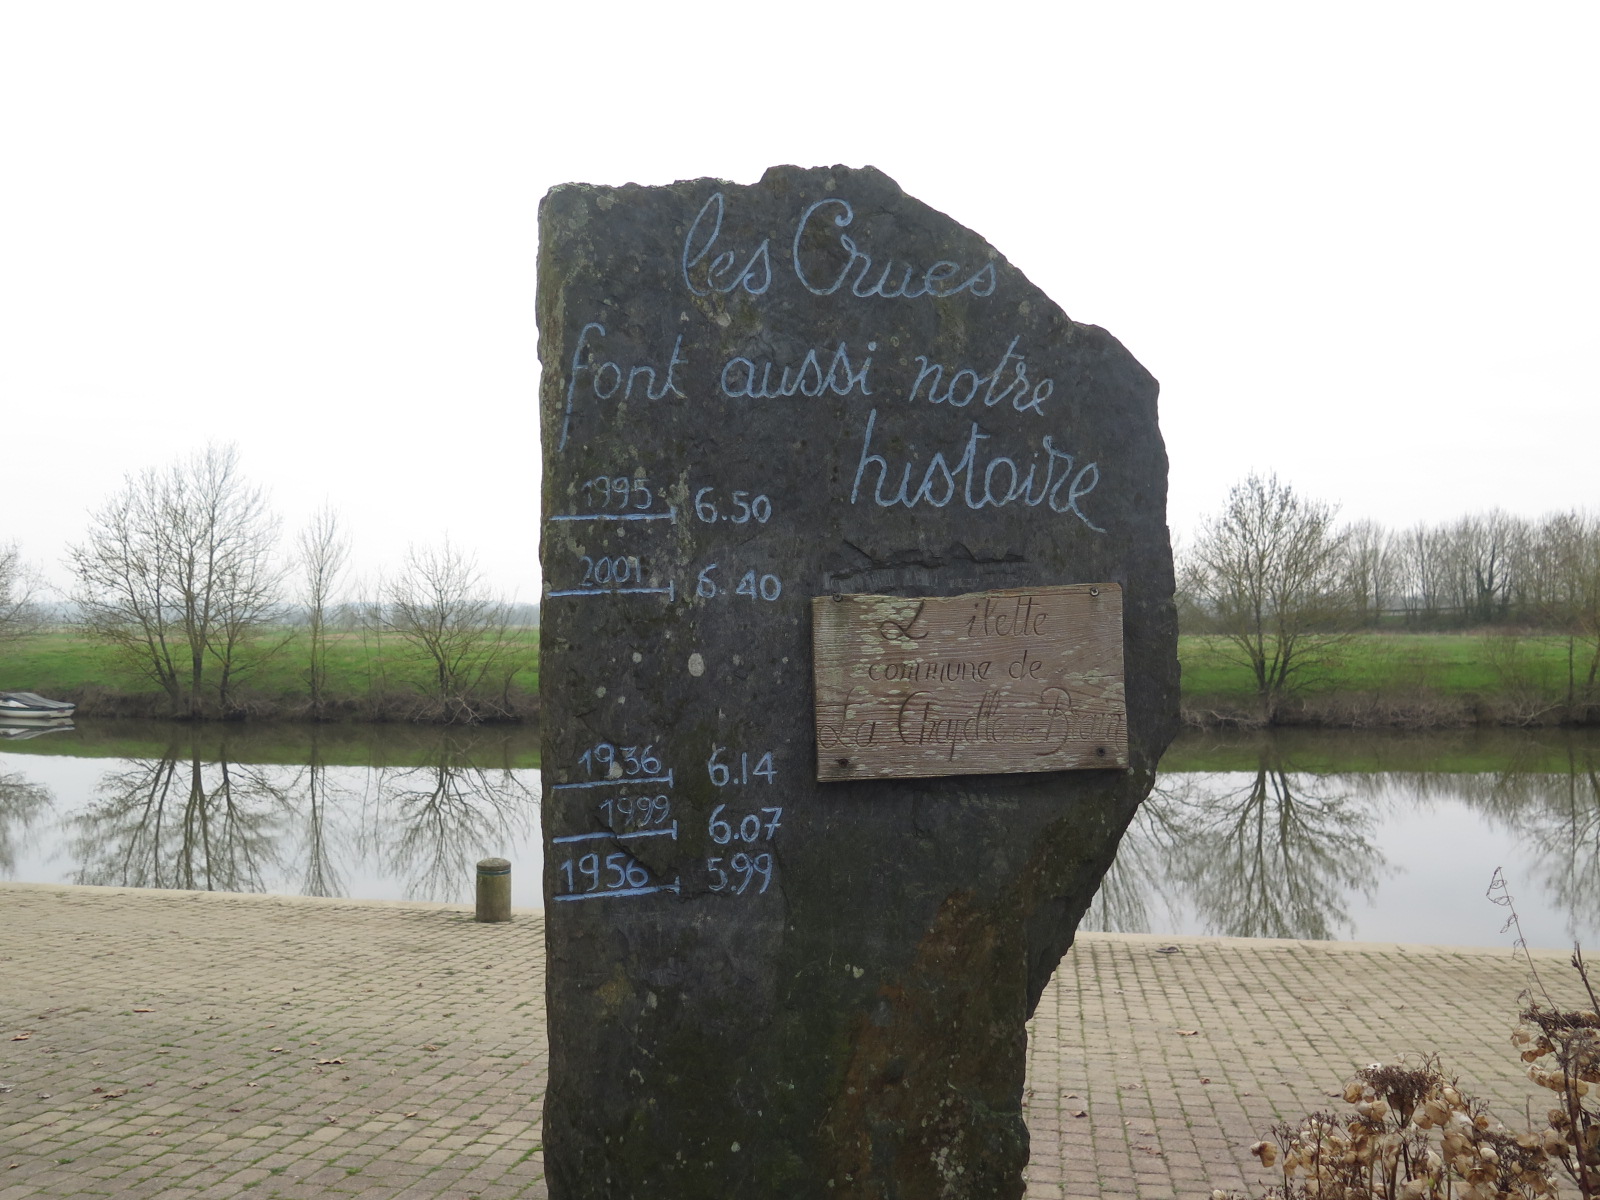 les Crues
font aussi notre
histoire
1995 6.50
2001 6.40
1936 6.14
1999 6.07
1956 5.99
L'ilette
commune de
La Chapelle de Brain